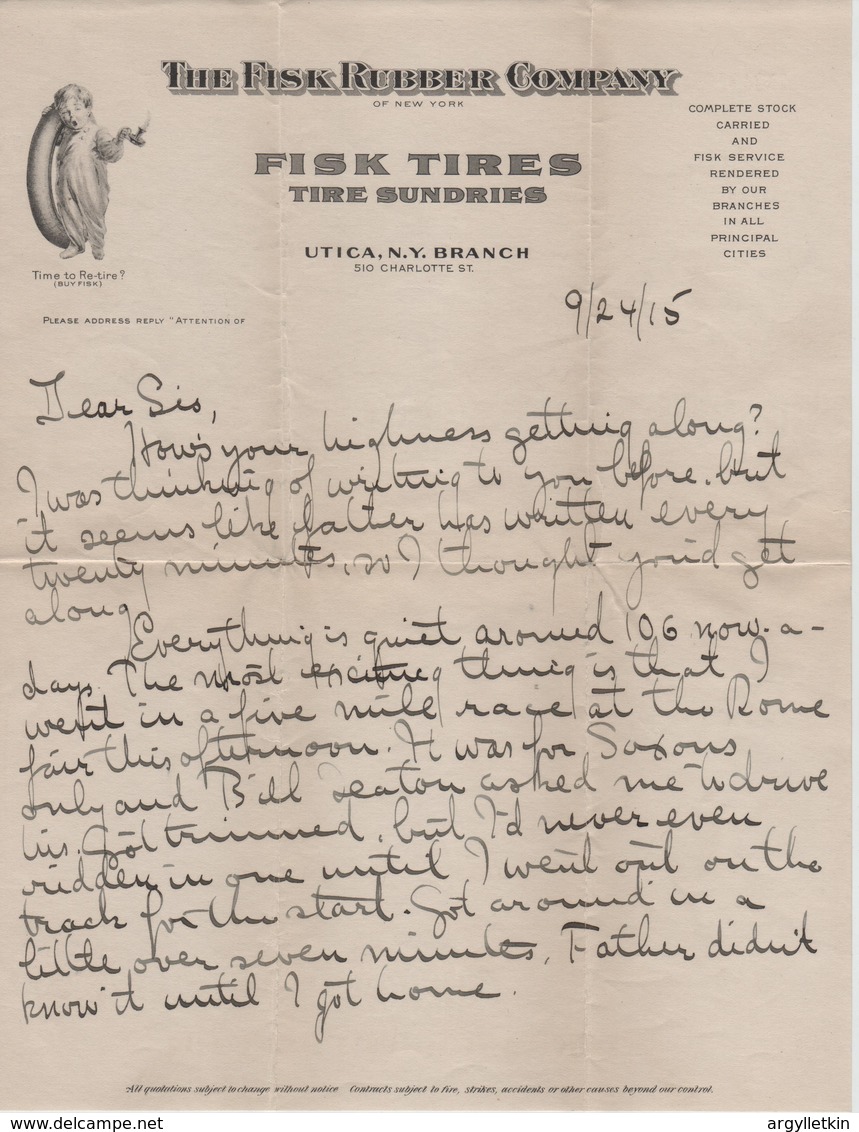 THE FISK RUBBER COMPANY
OF NEW YORK
FISK TIRES
TIRE SUNDRIES
UTICA, N.Y. BRANCH
510 CHARLOTTE ST.
COMPLETE STOCK
CARRIED
AND
FISK SERVICE
RENDERED
BY OUR
BRANCHES
IN ALL
PRINCIPAL
CITIES
Time to Re-tire?
(BUY FISK)
PLEASE ADDRESS REPLY "ATTENTION OF
9/24/15
Dear Sis,
How's your highness getting along?
I was thinking of writing to you before, but
it seems like father has written every
twenty minutes, so I thought you'd get
along
Everything is quiet around 106 now-a-
days. The most exciting thing is that I
went in a five mile race at the Rome
fair this afternoon. It was for Saxons
only and Bill Seaton asked me to drive
his. Got trimmed, but I'd never even
ridden in one until I went out on the
track for the start. Got around in a
little over seven minutes. Father didn't
know it until I got home.
All quotations subject to change without notice Contracts subject to fire, strikes, accidents or other causes beyond our control.
delcampe.net
argylletkin